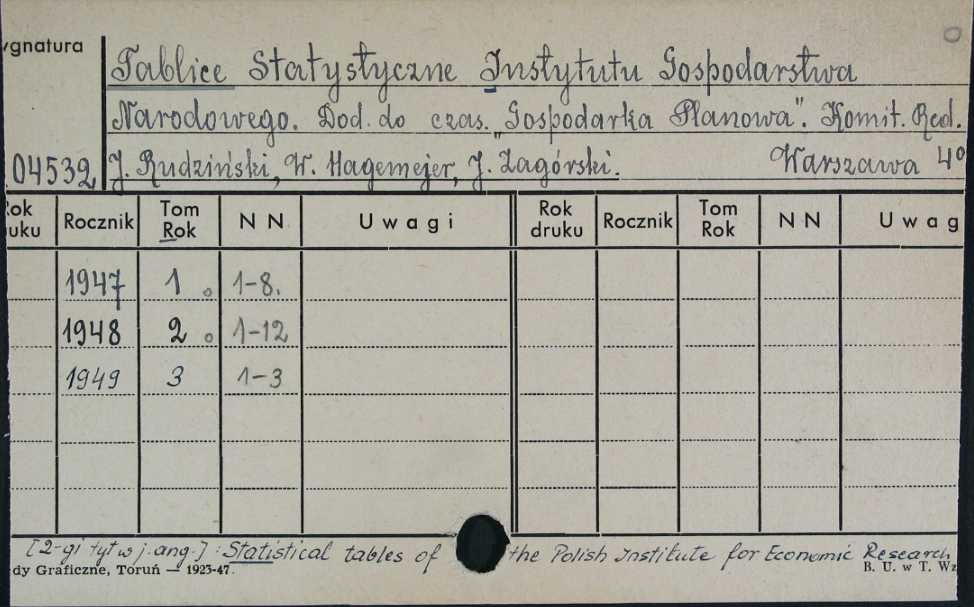 ygnatura
Tablice Statystyczne Instytutu Gospodarstwa
Narodowego. Dod. do czas. "Gospodarka Planowa". Komit. Red.
04532 J. Rudziński, W. Hagemejer, J. Zagórski. Warszawa 4°
Rok druku Rocznik Tom Rok N N Uwagi Rok druku Rocznik Tom Rok N N Uwag
1947 1 1-8.
1948 2 1-12
1949 3 1-3
[2-gi tyt w j. ang.]: Statistical tables of the Polish Institute for Economic Research
dy Graficzne, Toruń — 1923-47. B. U. w T. Wz